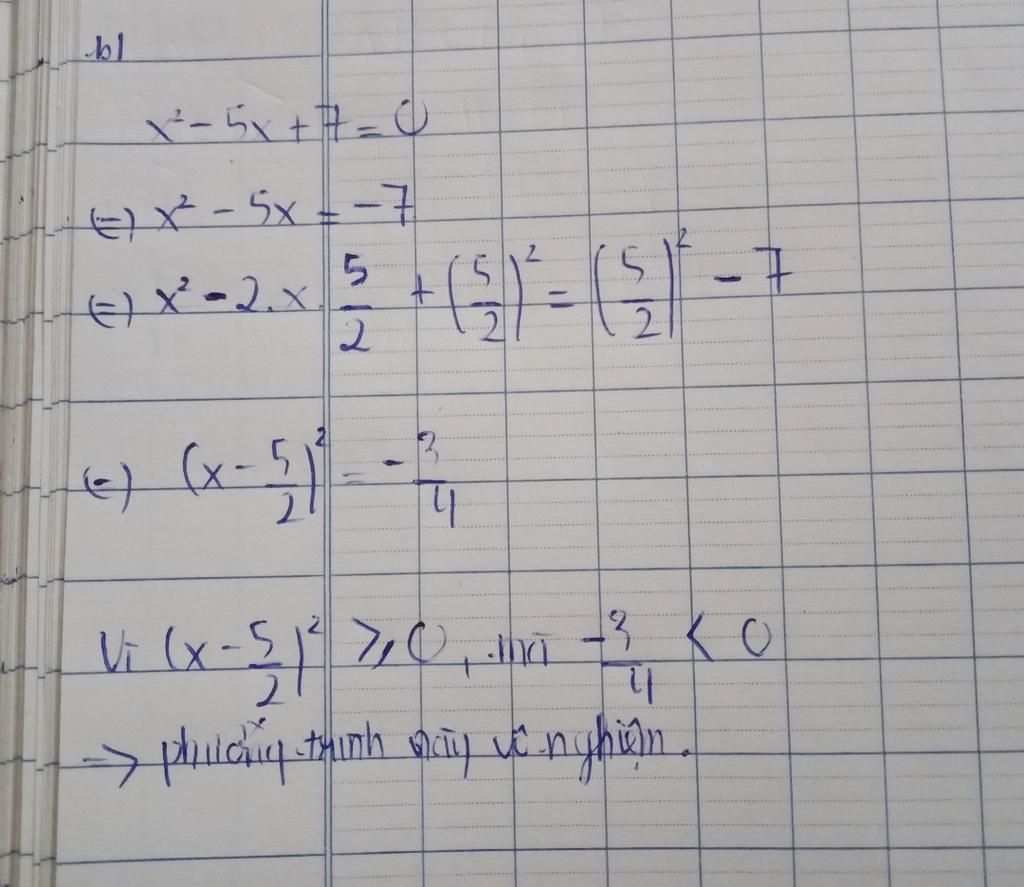 b)
x² - 5x + 7 = 0
(=) x² - 5x = -7
(=) x² - 2.x.5/2 + (5/2)² = (5/2)² - 7
(=) (x - 5/2)² = -3/4
Vì (x - 5/2)² ≥ 0, mà -3/4 < 0
-> phương trình này vô nghiệm.